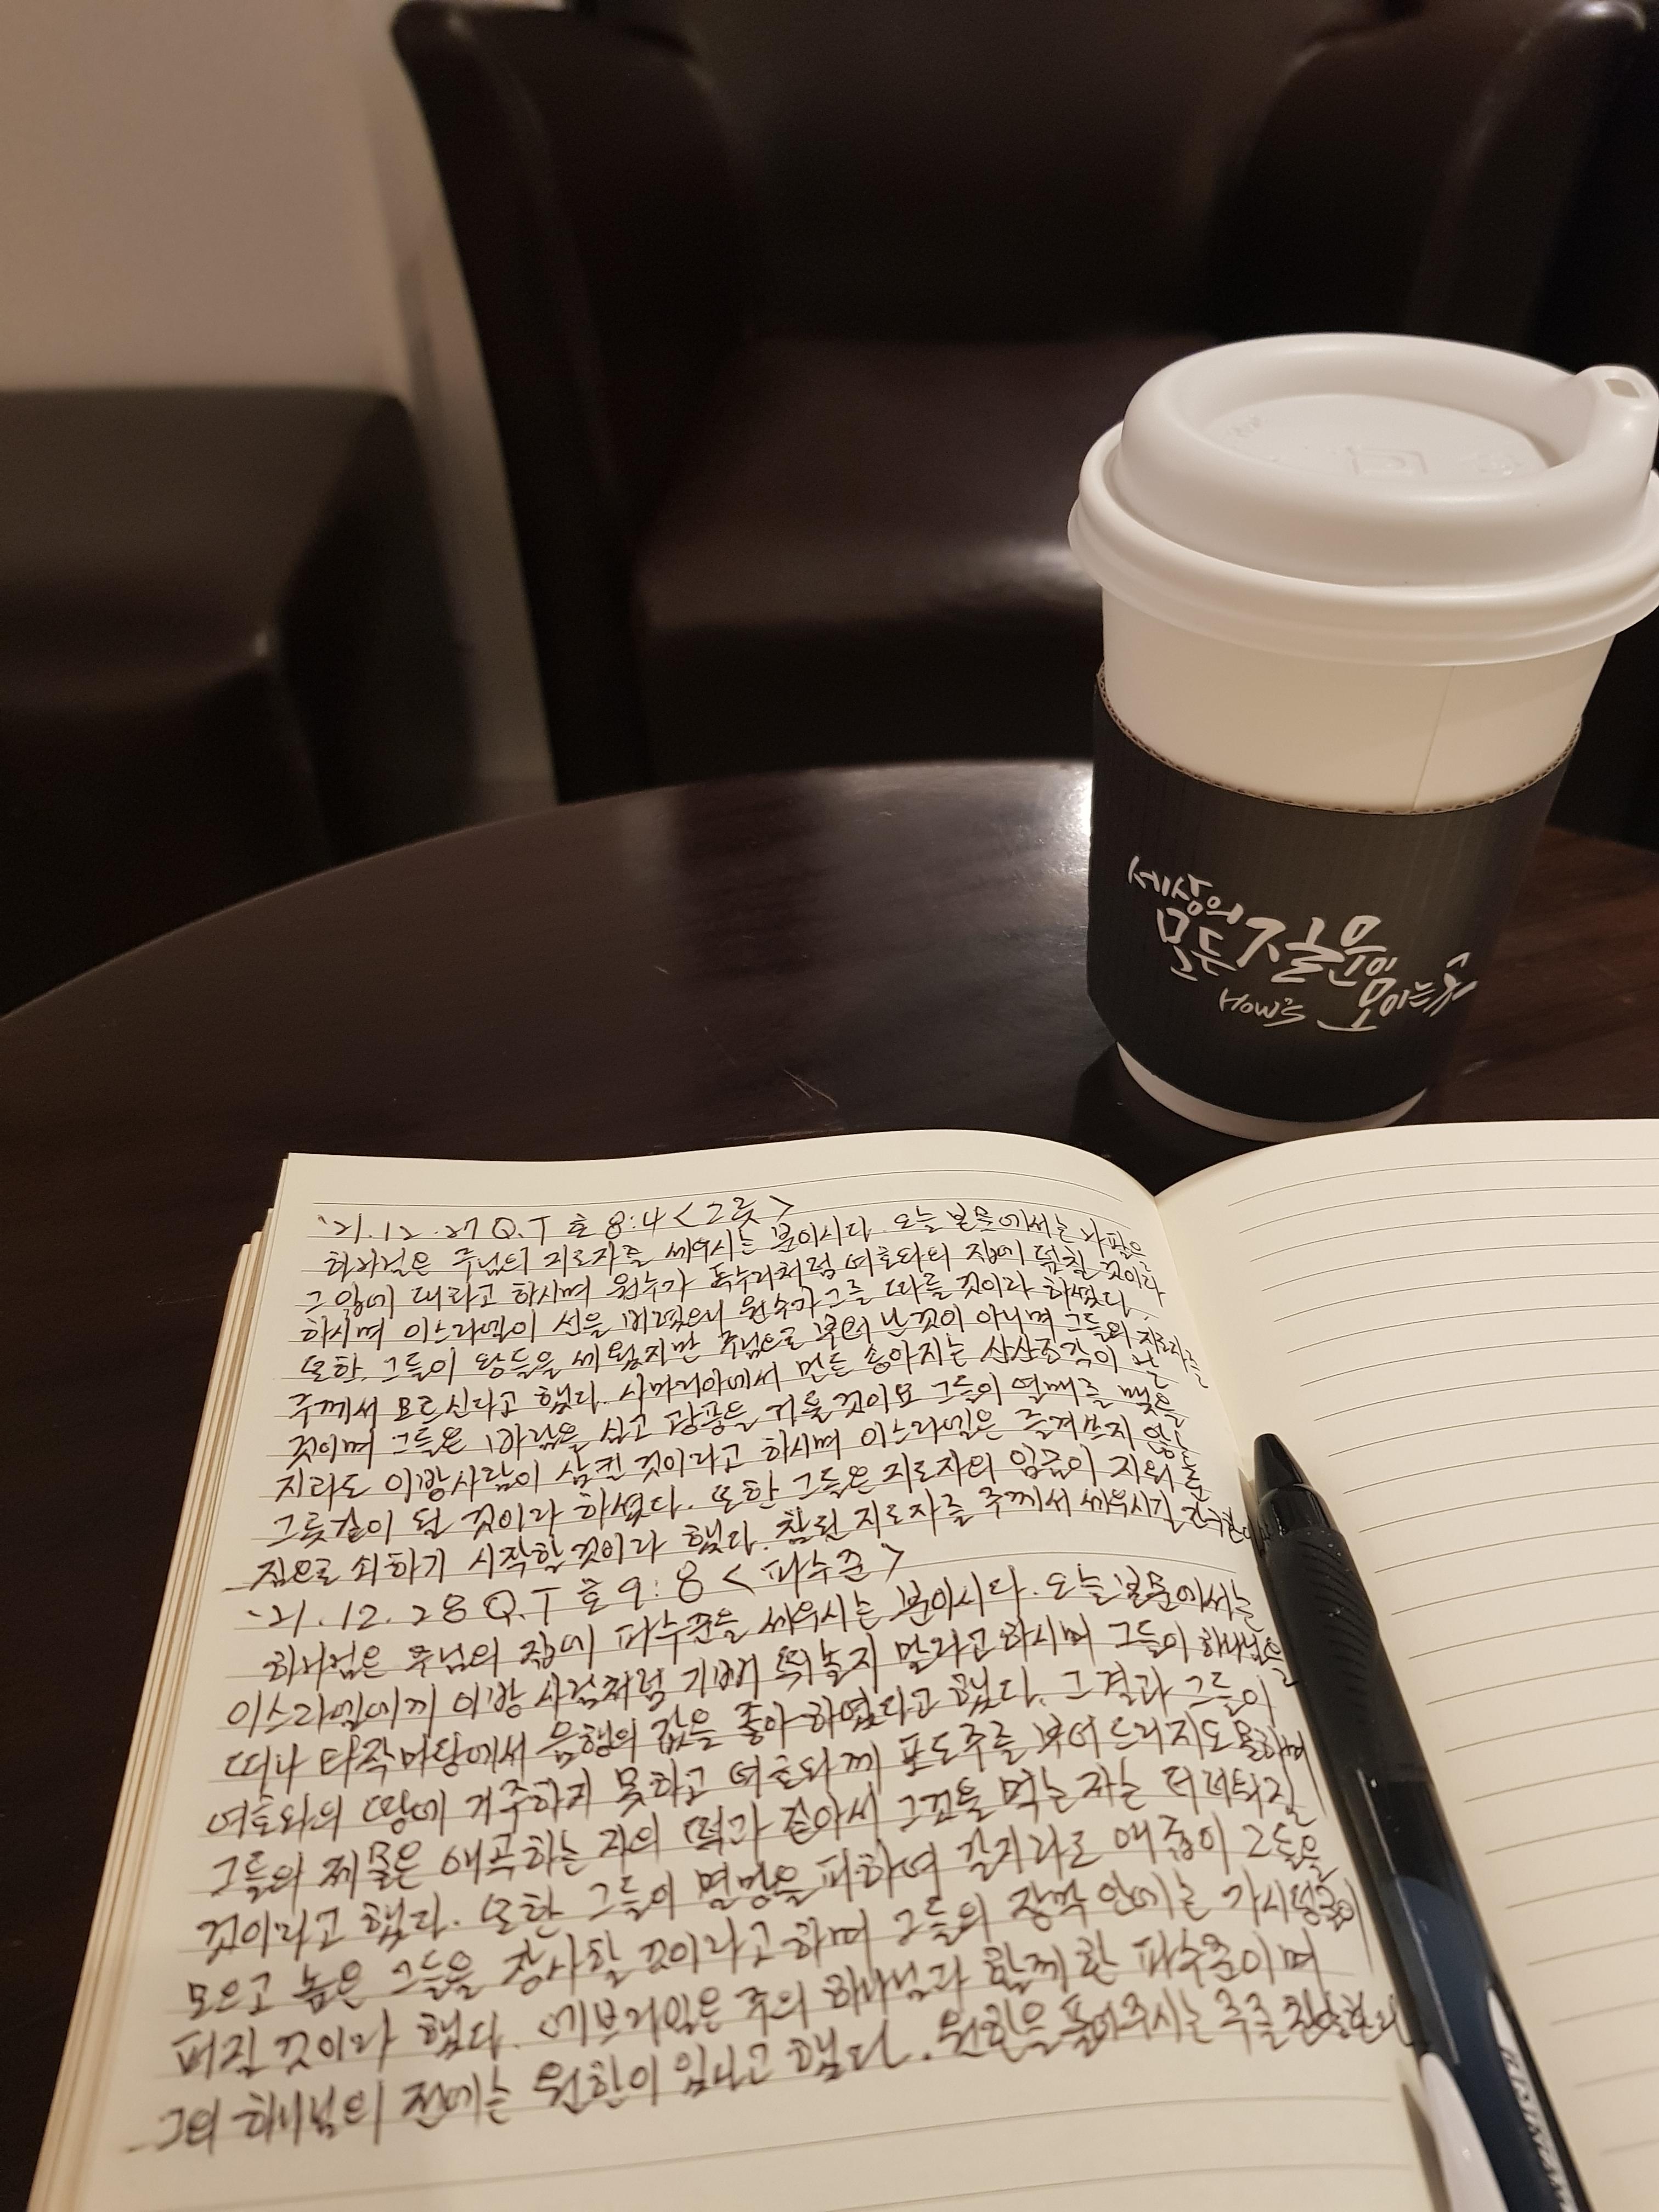 세상의
모든 젊음이
How's 모이는 곳
'21.12.27 Q.T 호 8:4 <그릇>
하나님은 주님의 지도자를 세우시는 분이시다. 오늘 본문에서는 나팔을
그 입에 대라고 하시며 원수가 독수리처럼 여호와의 집에 덮칠 것이라
하시며 이스라엘이 선을 버렸으니 원수가 그를 따를 것이라 하셨다.
또한, 그들이 왕들을 세웠지만 주님으로 부터 난 것이 아니며 그들의 지도자를
주께서 모르신다고 했다. 사마리아에서 만든 송아지는 산산조각이 날
것이며 그들은 바람을 심고 광풍을 거둘 것이요 그들이 열매를 맺을
지라도 이방사람이 삼킬 것이라고 하시며 이스라엘은 즐겨쓰지 않는
그릇같이 될 것이라 하셨다. 또한 그들은 지도자의 임금이 지워준
짐으로 쇠하기 시작할 것이라 했다. 참된 지도자를 주께서 세우시길 간구한다
'21.12.28 Q.T 호 9:8 <파수꾼>
하나님은 주님의 집에 파수꾼들 세우시는 분이시다. 오늘 본문에서는
이스라엘에게 이방 사람처럼 기뻐 뛰놀지 말라고 하시며 그들이 하나님을
떠나 타작마당에서 음행의 값을 좋아 하였다고 했다. 그 결과 그들이
여호와의 땅에 거주하지 못하고 여호와께 포도주를 부어 드리지도 못하며
그들의 제물은 애곡하는 자의 떡과 같아서 그것을 먹는 자는 더러워질
것이라고 했다. 또한 그들이 멸망을 피하여 갈지라도 애굽이 그들을
모으고 놉은 그들을 장사할 것이라고 하며 그들의 장막 안에는 가시덩굴이
퍼질 것이라 했다. 에브라임은 주의 하나님과 함께한 파수꾼이며
그의 하나님의 전에는 원한이 있다고 했다. 원한을 풀어주시는 주를 찬양한다